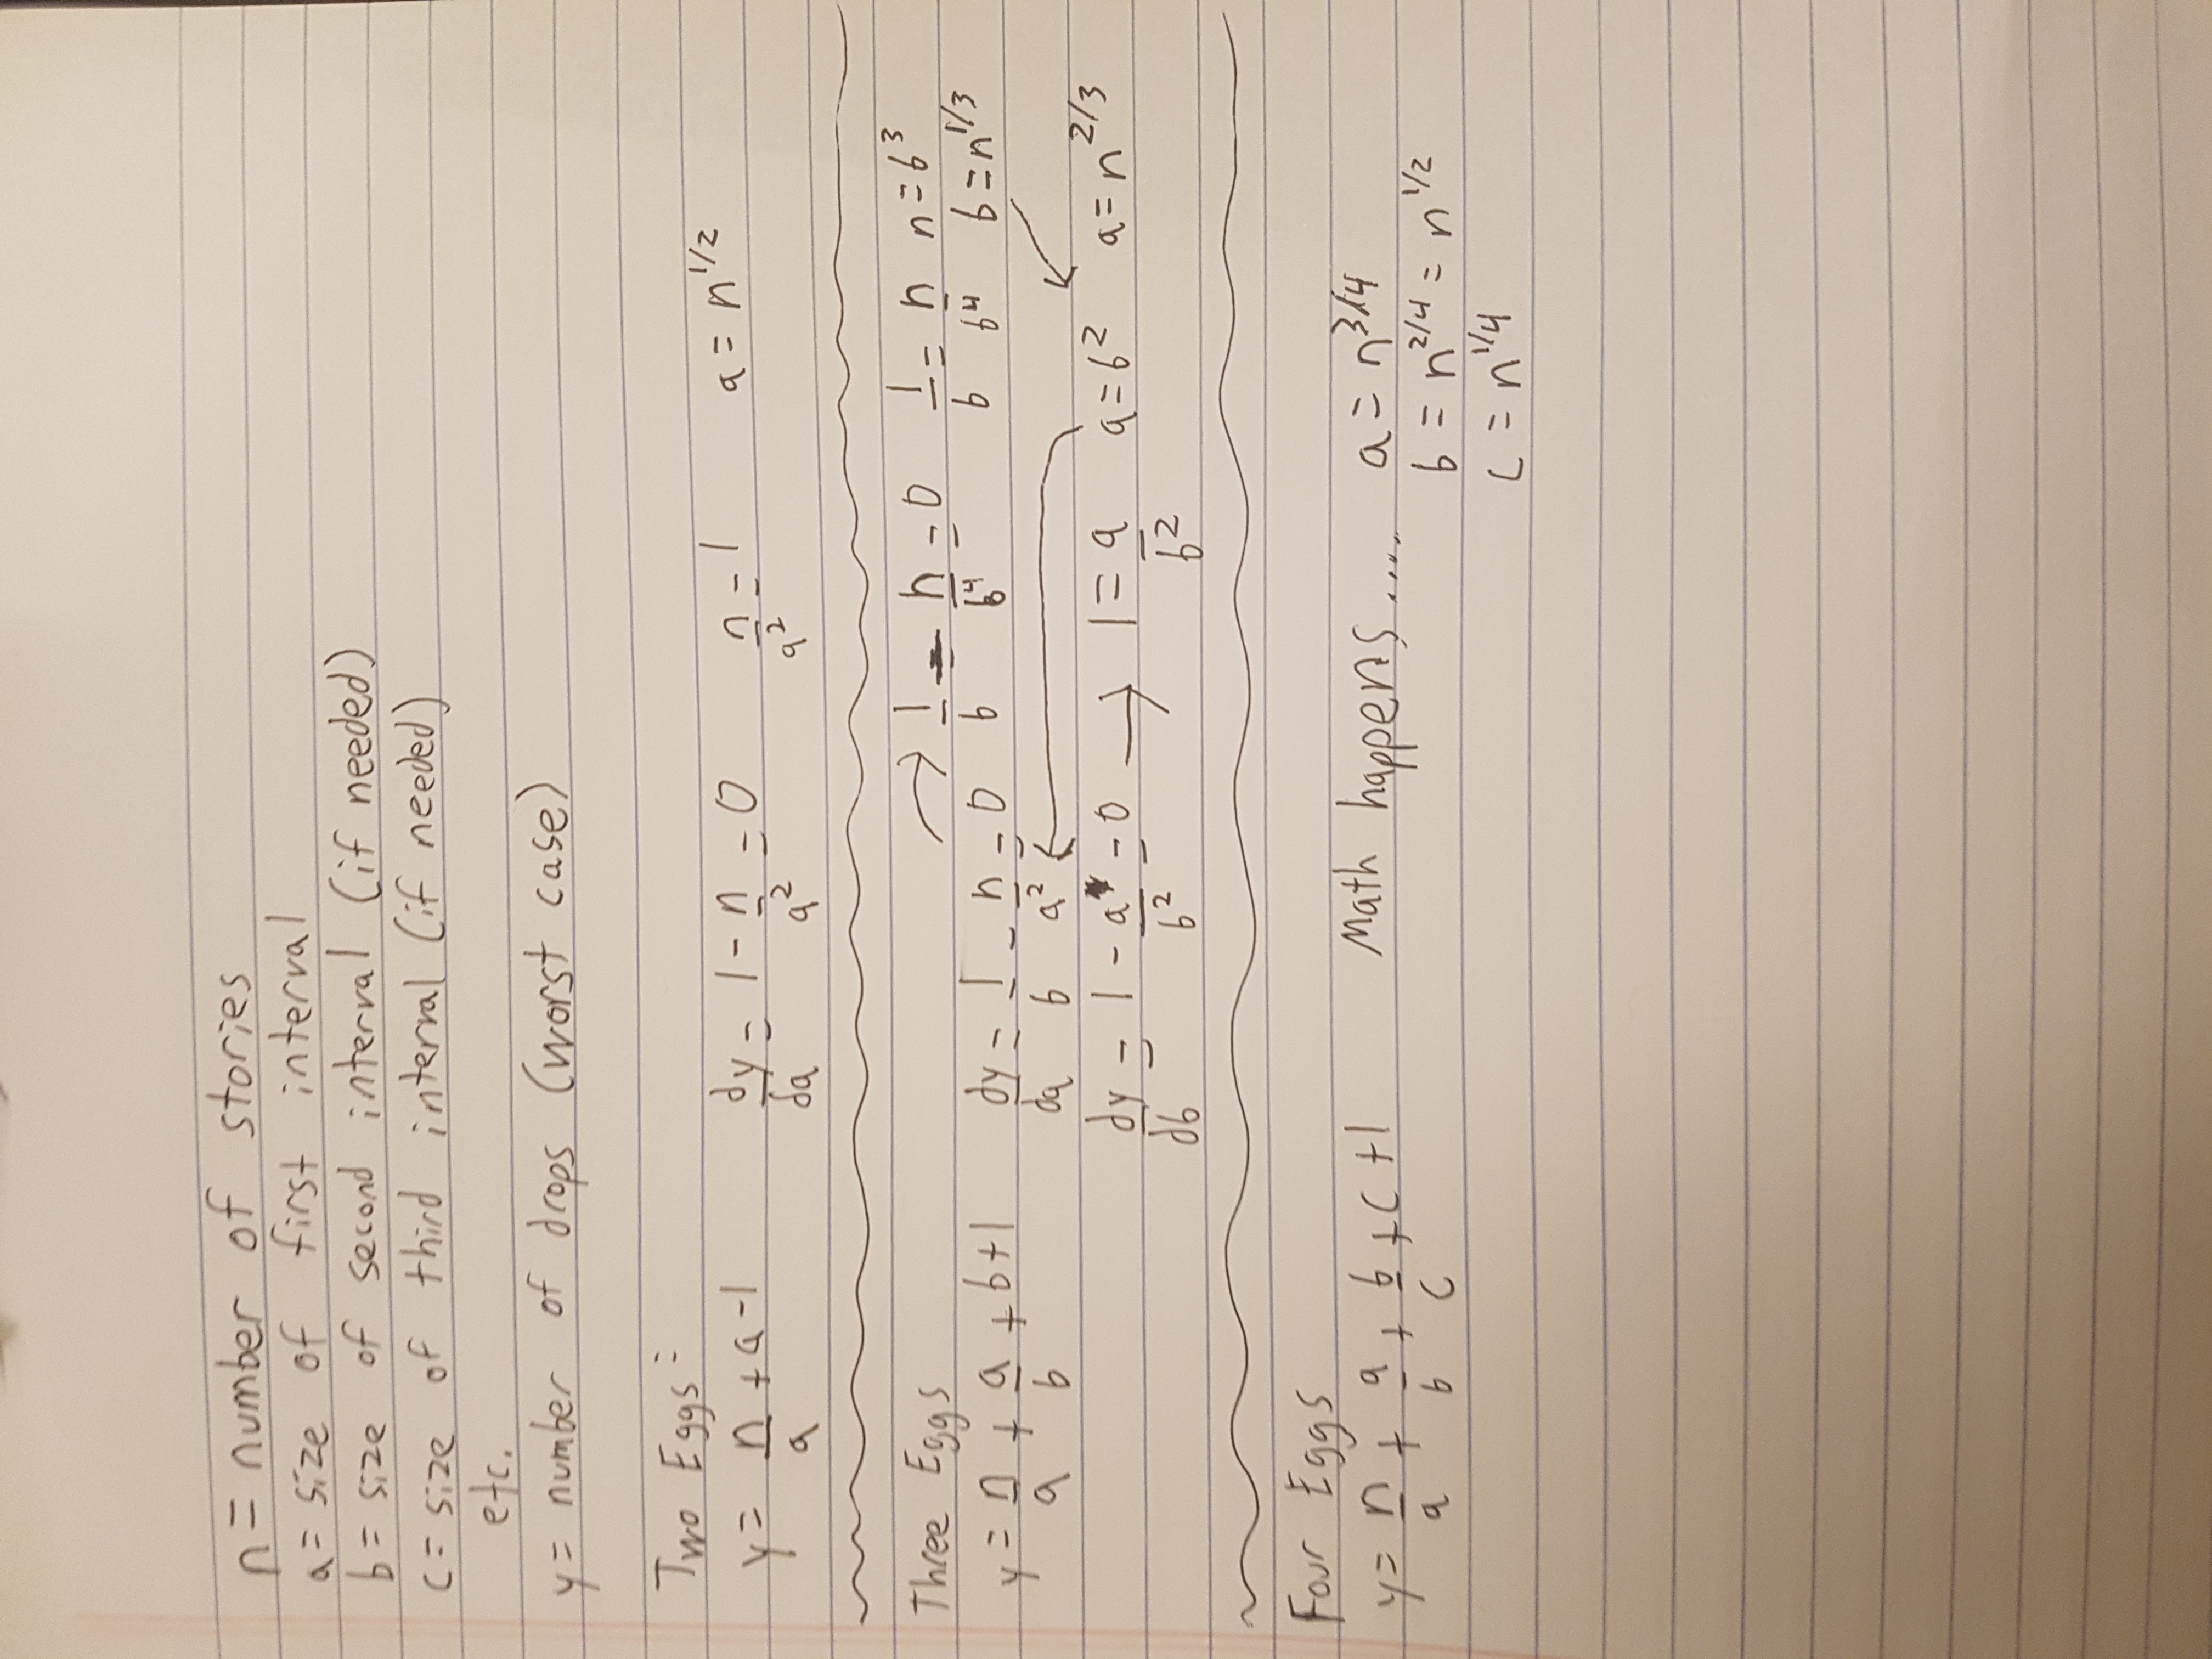 n = number of stories
a = size of first interval
b = size of second interval (if needed)
c = size of third interval (if needed)
etc.
y = number of drops (worst case)
Two Eggs:
y = n/a + a - 1    dy/da = 1 - n/a² = 0    n/a² = 1    a = n^1/2
Three Eggs
→ 1/b - n/b⁴ = 0    1/b = n/b⁴    n = b³
b = n^1/3
y = n/a + a/b + b + 1    dy/da = 1/b - n/a² = 0
dy/db = 1 - a/b² = 0 → 1 = a/b²    a = b²    a = n^2/3
Four Eggs
y = n/a + a/b + b/c + c + 1    Math happens....    a = n^3/4
b = n^2/4 = n^1/2
c = n^1/4